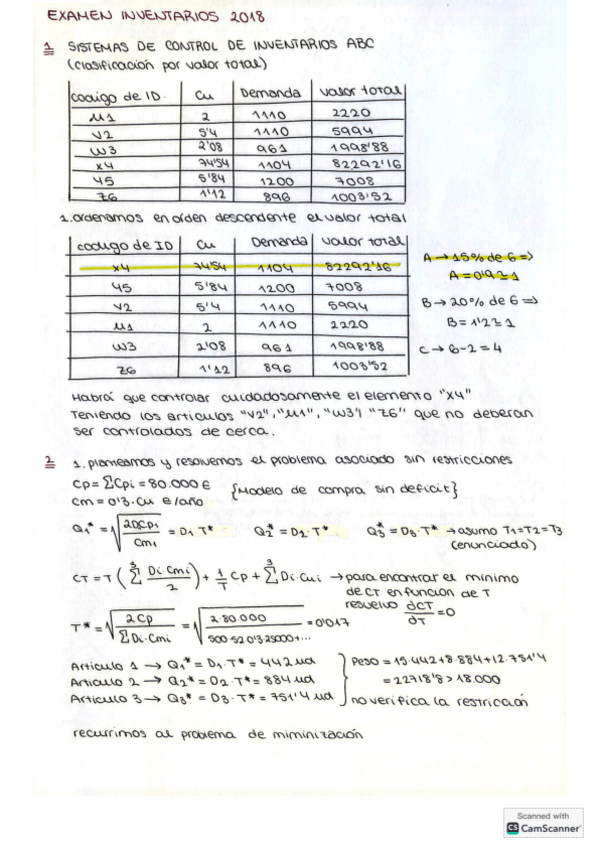 EXAMEN INVENTARIOS 2018
1 SISTEMAS DE CONTROL DE INVENTARIOS ABC
(clasificación por valor total)
codigo de ID. Cu Demanda valor total
M1 2 1110 2220
V2 5'4 1110 5994
W3 2'08 961 1998'88
X4 74'54 1104 82292'16
Y5 5'84 1200 7008
Z6 1'12 896 1003'52
1. ordenamos en orden descendente el valor total
codigo de ID Cu Demanda valor total
X4 74'54 1104 82292'16
Y5 5'84 1200 7008
V2 5'4 1110 5994
M1 2 1110 2220
W3 2'08 961 1998'88
Z6 1'12 896 1003'52
A → 15% de 6 =>
A = 0'9 ≃ 1
B → 20% de 6 =>
B = 1'2 ≃ 1
C → 6-2 = 4
Habrá que controlar cuidadosamente el elemento "X4"
Teniendo los articulos "V2", "M1", "W3" y "Z6" que no deberan
ser controlados de cerca.
2 1. planteamos y resolvemos el problema asociado sin restricciones
Cp = ΣCpi = 80.000 €
Cm = 0'3·Cu €/año
{Modelo de compra sin deficit}
Q1* = √(2DCp1/Cm1) = D1·T* Q2* = D2·T* Q3* = D3·T* → asumo T1=T2=T3
(enunciado)
CT = T (Σ³ Di·Cmi/2) + 1/T Cp + Σ³ Di·Cui → para encontrar el minimo
de CT en funcion de T
resuelvo ∂CT/∂T = 0
T* = √(2Cp/ΣDi·Cmi) = √(2·80.000/500·52·0'3·25000+...) = 0'017
Articulo 1 → Q1* = D1·T* = 442 ud
Articulo 2 → Q2* = D2·T* = 884 ud
Articulo 3 → Q3* = D3·T* = 751'4 ud
Peso = 15·442+8·884+12·751'4
= 22718'8 > 18.000
no verifica la restricción
recurrimos al problema de miminización
Scanned with
CS CamScanner